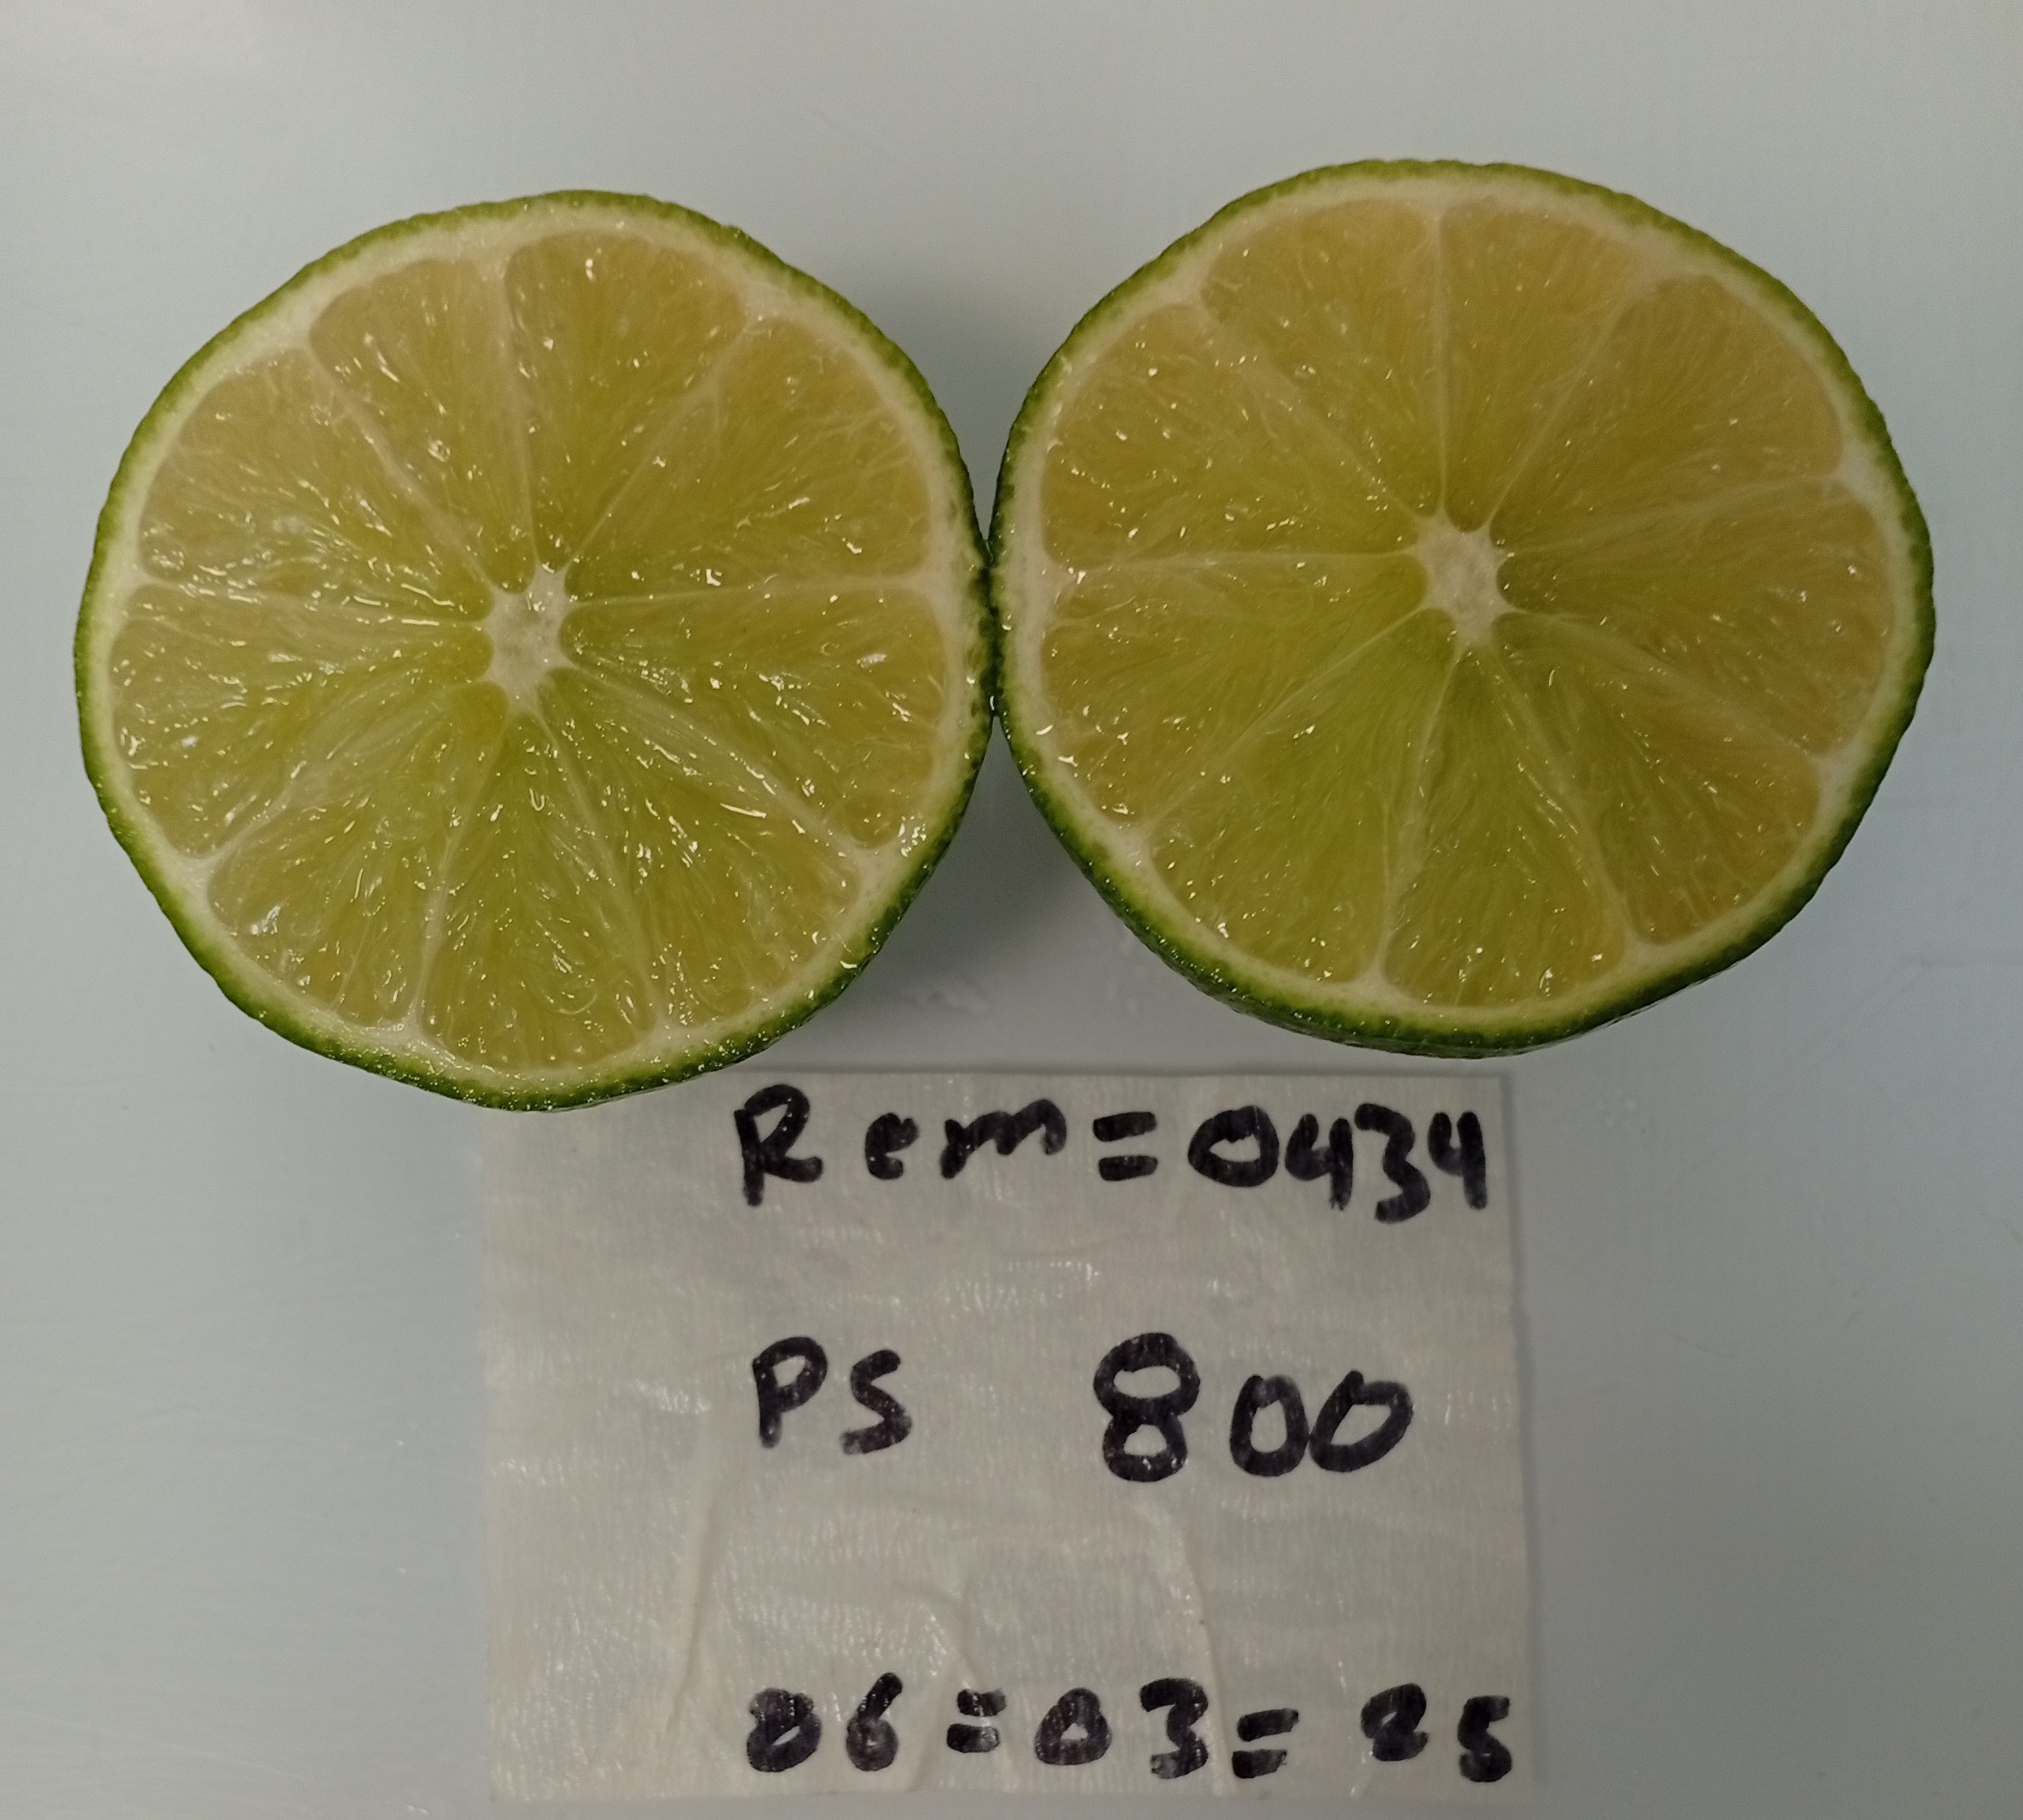 Rem=0434
PS 800
06=03=25